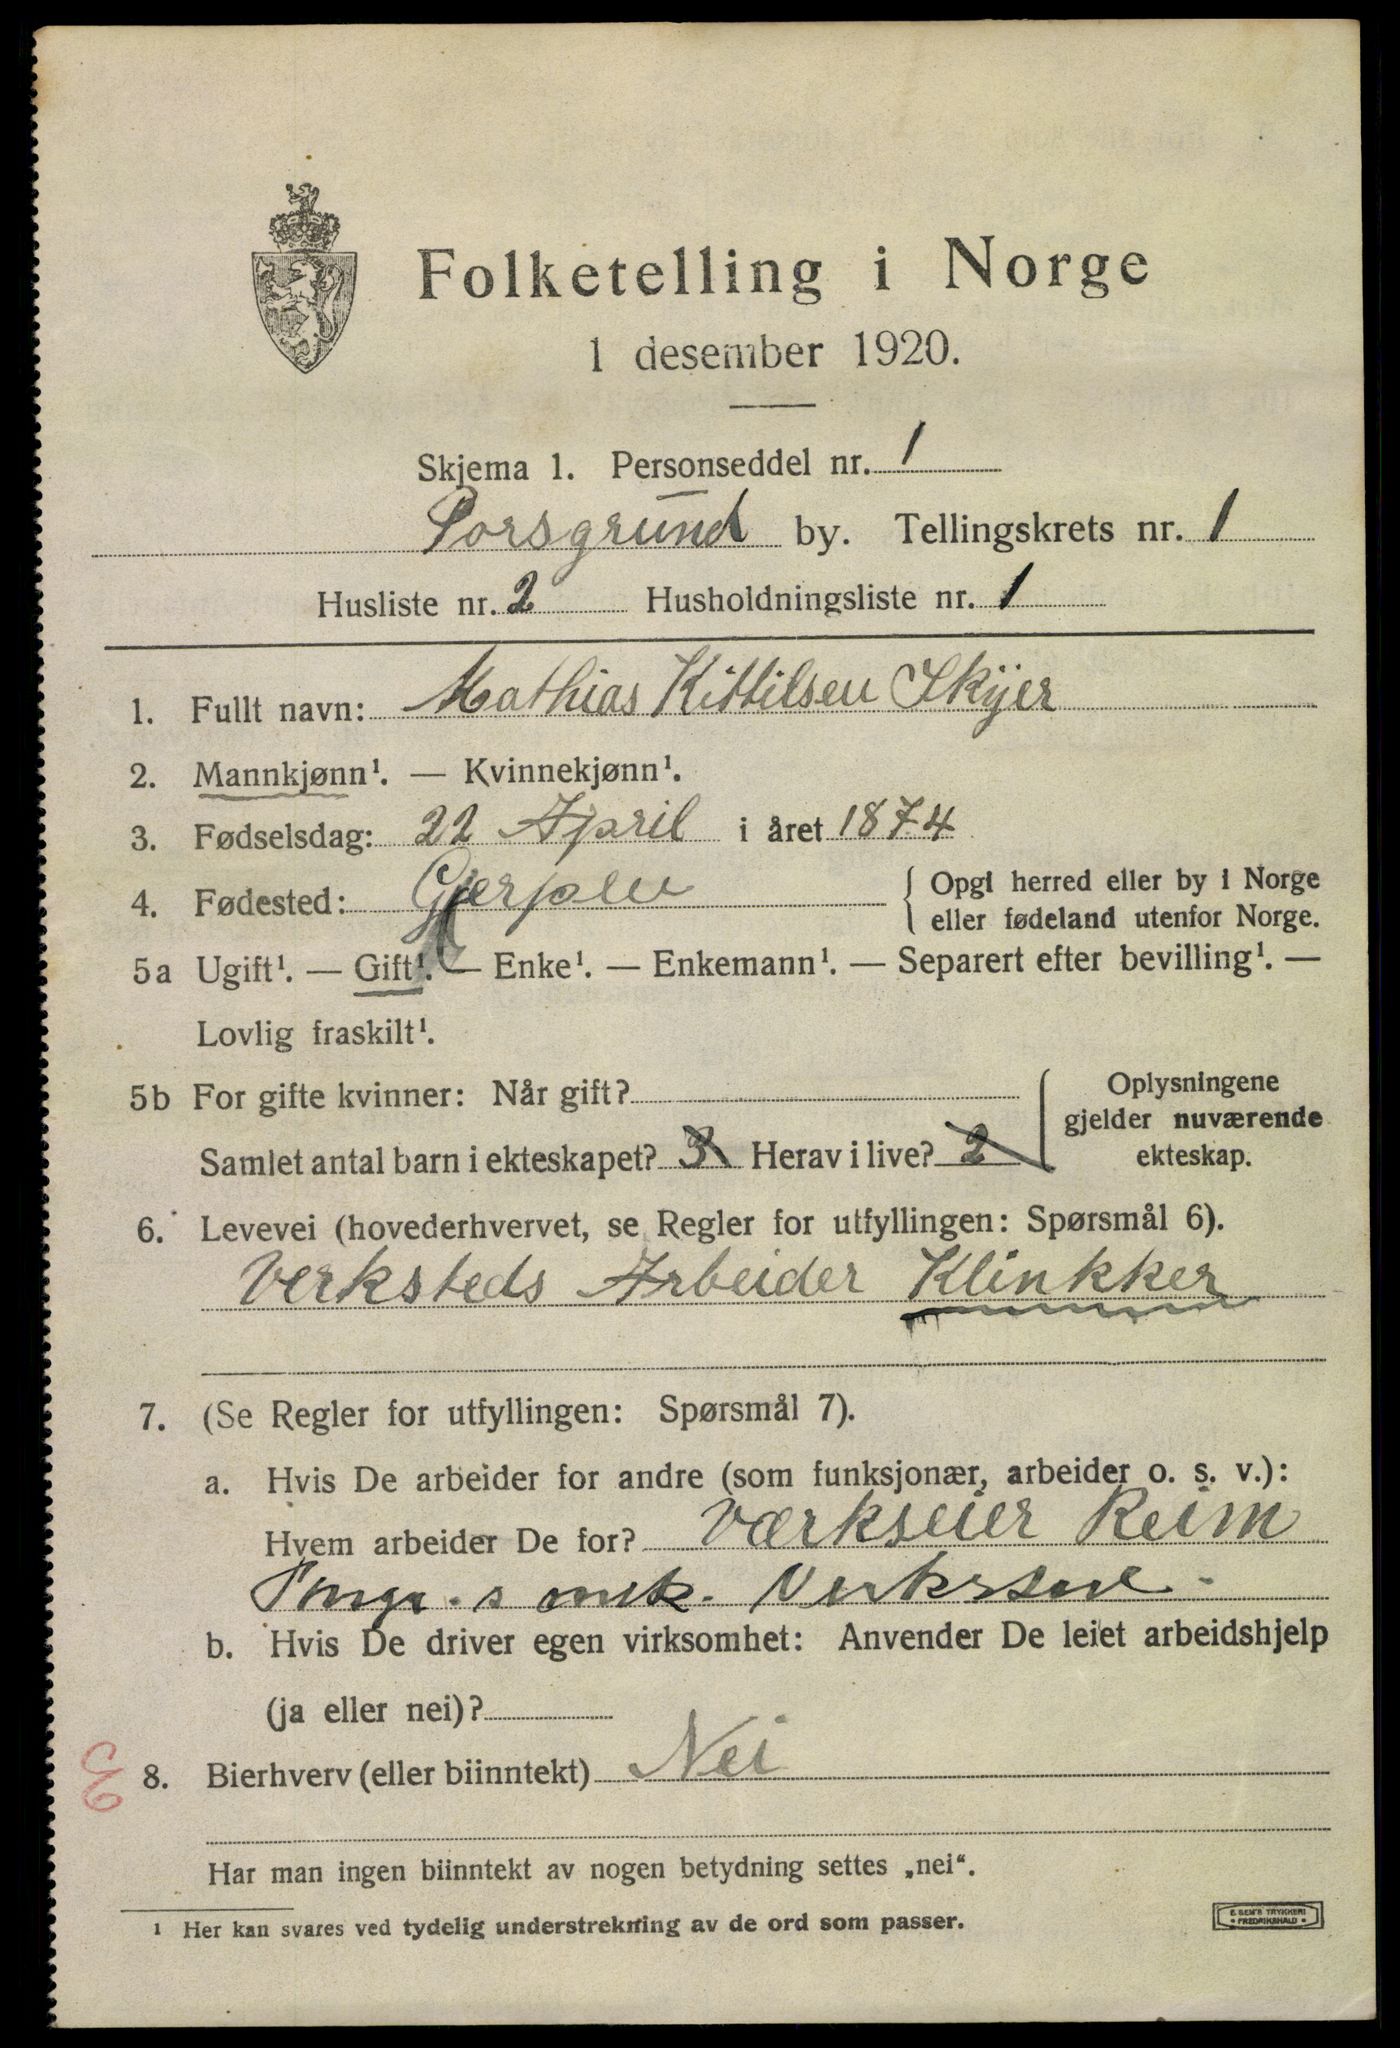 Folketelling i Norge
1 desember 1920.
Skjema 1. Personseddel nr. 1
Porsgrund by. Tellingskrets nr. 1
Husliste nr. 2 Husholdningsliste nr. 1
1. Fullt navn: Mathias Kittilsen Skyer
2. Mannkjønn¹. — Kvinnekjønn¹.
3. Fødselsdag: 22 April i året 1874
4. Fødested: Gjerpen { Opgi herred eller by i Norge
eller fødeland utenfor Norge.
5a Ugift¹. — Gift¹. — Enke¹. — Enkemann¹. — Separert efter bevilling¹. —
Lovlig fraskilt¹.
5b For gifte kvinner: Når gift?
Samlet antal barn i ekteskapet? 3 Herav i live? 2
Oplysningene
gjelder nuværende
ekteskap.
6. Levevei (hovederhvervet, se Regler for utfyllingen: Spørsmål 6).
Verksteds Arbeider Klinkker
7. (Se Regler for utfyllingen: Spørsmål 7).
a. Hvis De arbeider for andre (som funksjonær, arbeider o. s. v.):
Hvem arbeider De for? Værkseier Reim
s mek. Verksted
b. Hvis De driver egen virksomhet: Anvender De leiet arbeidshjelp
(ja eller nei)?
8. Bierhverv (eller biinntekt) Nei
Har man ingen biinntekt av nogen betydning settes „nei“.
¹ Her kan svares ved tydelig understrekning av de ord som passer.
E. SEM'S TRYKKERI
FREDRIKSHALD